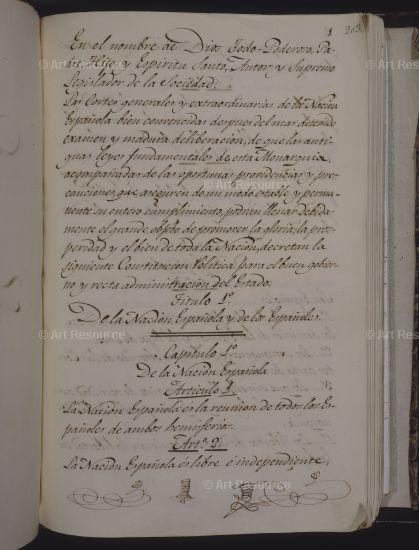 1
En el nombre de Dios Todo-Poderoso, Pa-
dre, Hijo, y Espiritu Santo, Autor, y Supremo
Legislador de la Sociedad:
Las Cortes generales y extraordinarias de la Nacion
Española bien convencidas despues del mas detenido
examen y madura deliberacion, de que las anti-
guas leyes fundamentales de esta Monarquia,
acompañadas de las oportunas providencias y pre-
cauciones, que aseguren de un modo estable y perma-
nente su entero cumplimiento, podran llenar debida-
mente el grande objeto de promover la gloria, la pros-
peridad y el bien de toda la Nacion, decretan la
siguiente Constitucion Politica para el buen gobier-
no y recta administracion del Estado.
Titulo 1º
De la Nacion Española y de los Españoles.
Capitulo 1º
De la Nacion Española
Articulo 1.
La Nacion Española es la reunion de todos los Es-
pañoles de ambos hemisferios.
Art.º 2.
La Nacion Española es libre é independiente,
© Art Resource
© Art Resource
© Art Resource
© Art Resource
© Art Resource
© Art Resource